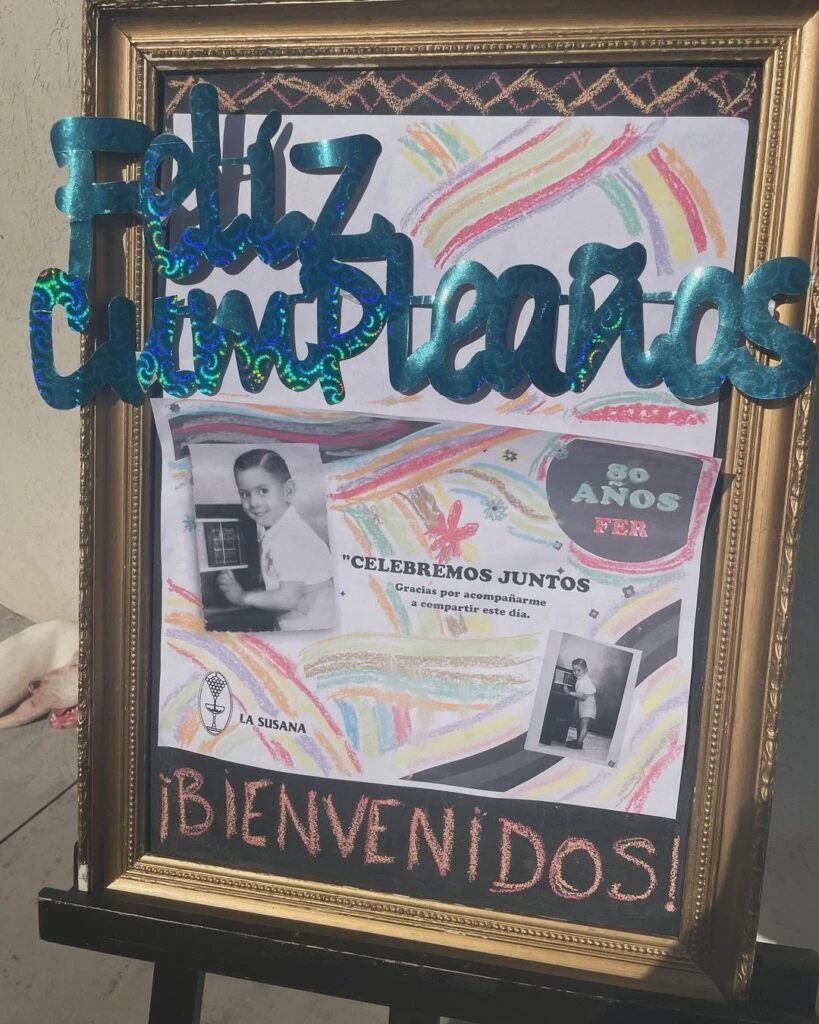 Feliz
Cumpleaños
80
AÑOS
FER
"CELEBREMOS JUNTOS
Gracias por acompañarme
a compartir este día.
LA SUSANA
¡BIENVENIDOS!